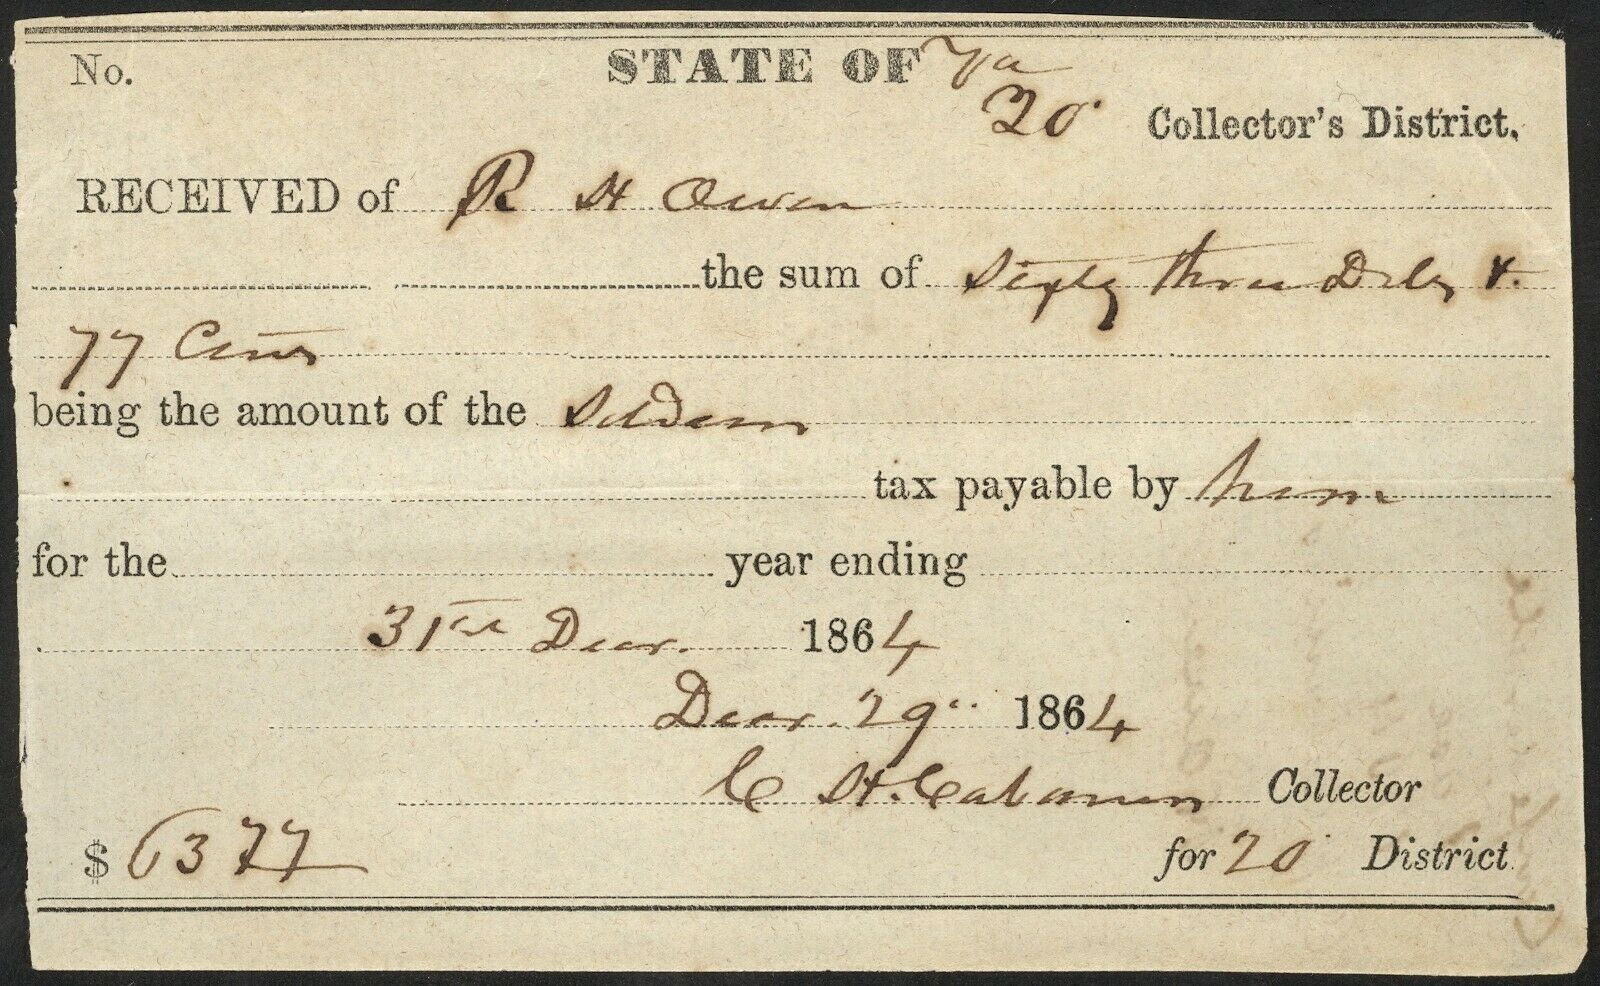 No. STATE OF Va
20 Collector's District.
RECEIVED of R H Owen
the sum of Sixty three Dols &
77 Cents
being the amount of the Soldiers
tax payable by him
for the year ending
31st Decr. 1864
Decr. 29" 1864
C H. Cabaniss Collector
$ 63 77 for 20 District